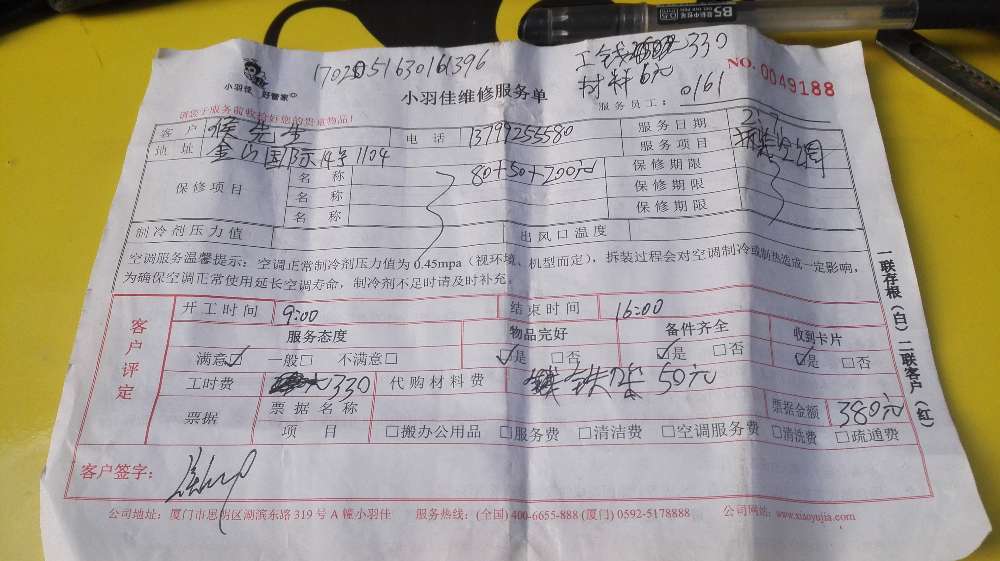 B5
1702051630161396
工钱 330
材料6元
NO. 0049188
小羽佳 好管家
小羽佳维修服务单
服务员工： 0161
请您于服务前收拾好您的贵重物品！
客户 侯先生 电话 13799255580 服务日期 2.7
地址 金山国际14号1104 服务项目 拆装空调
保修项目 名称 80+50+200元 保修期限
名称 保修期限
名称 保修期限
制冷剂压力值 出风口温度
空调服务温馨提示：空调正常制冷剂压力值为0.45mpa（视环境、机型而定），拆装过程会对空调制冷或制热造成一定影响，
为确保空调正常使用延长空调寿命，制冷剂不足时请及时补充。
一联存根（白）二联客户（红）
客户评定
开工时间 9:00 结束时间 16:00
服务态度 物品完好 备件齐全 收到卡片
满意☑ 一般□ 不满意□ ☑是 □否 ☑是 □否 ☑是 □否
工时费 330 代购材料费 铁架 50元
票据 票据名称 票据金额 380元
项目 □搬办公用品 □服务费 □清洁费 □空调服务费 □清洗费 □疏通费
客户签字：
公司地址：厦门市思明区湖滨东路319号A幢小羽佳 服务热线：(全国) 400-6655-888 (厦门) 0592-5178888 公司网站：www.xiaoyujia.com